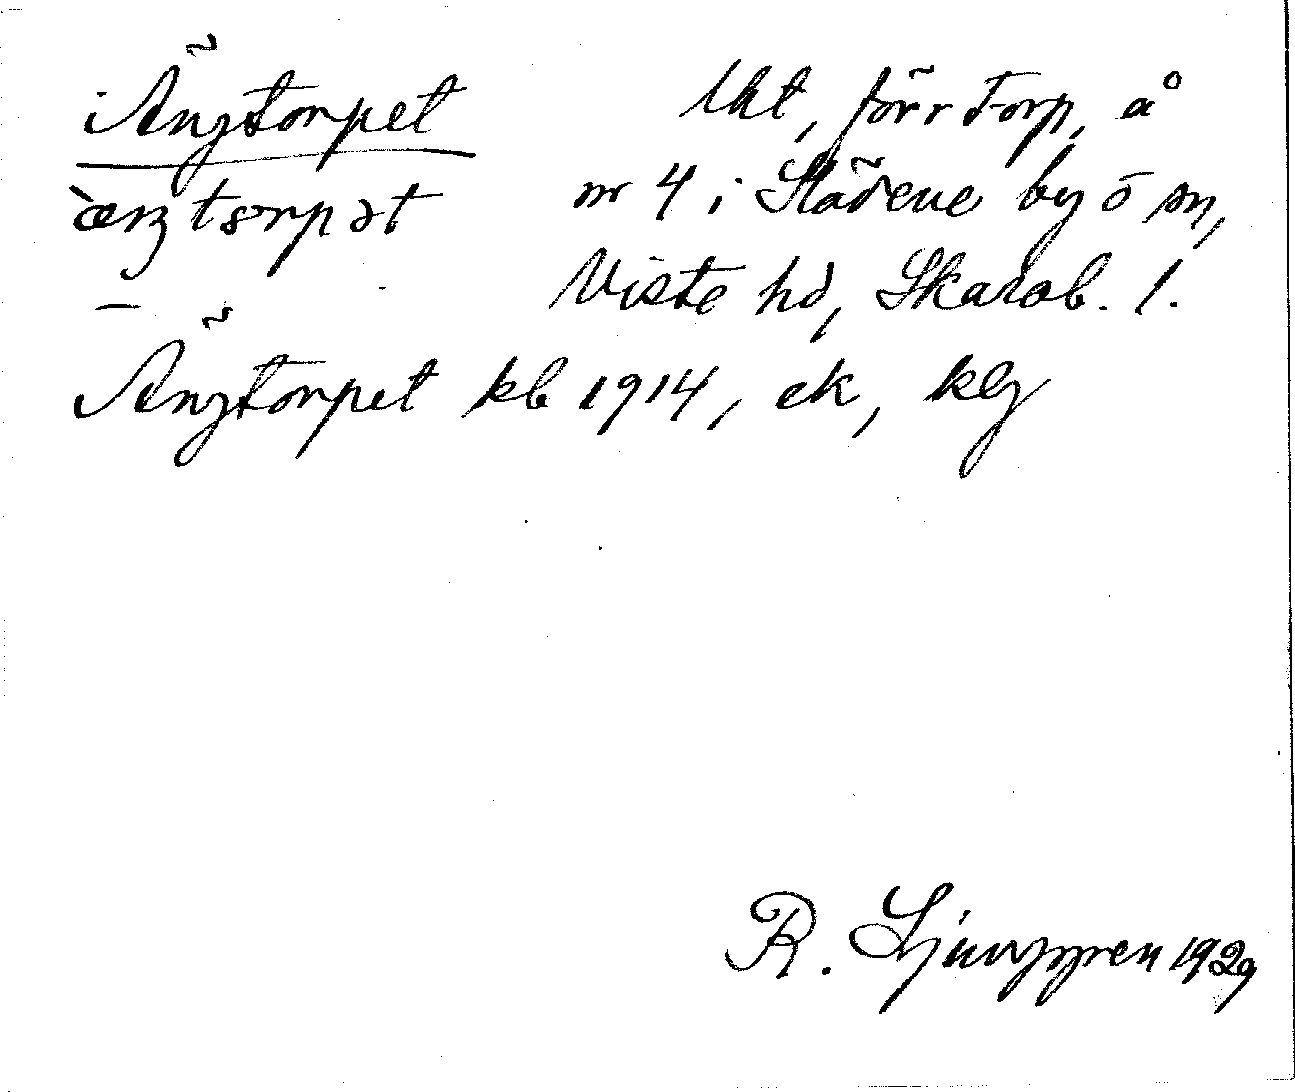 Ängtorpet
Uht, förr torp, å
nr 4 i Städene by ö sn,
Viste hd, Skarab. l.
Ängtorpet kb 1914, ek, klg
R. Ljunggren 1929